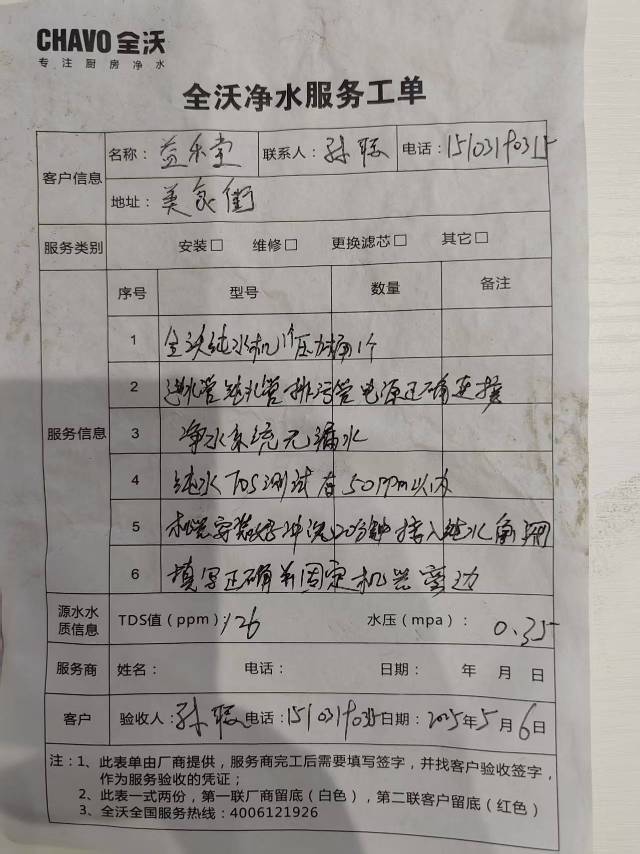 CHAVO 全沃
专注厨房净水
全沃净水服务工单
客户信息 名称： 益禾堂 联系人： 孙 电话：
地址： 美食街
服务类别 安装□ 维修□ 更换滤芯□ 其它□
服务信息 序号 型号 数量 备注
1 全沃纯水机1个压力桶1个
2 进水管纯水管排污管电源正确连接
3 净水系统无漏水
4 纯水TDS测试在50ppm以内
5 机器安装好冲洗20分钟接入纯水使用
6 填写正确并固定机器旁边
源水水质信息 TDS值（ppm）： 126 水压（mpa）： 0.35
服务商 姓名： 电话： 日期： 年 月 日
客户 验收人： 孙 电话： 日期： 2025年5月6日
注：1、此表单由厂商提供，服务商完工后需要填写签字，并找客户验收签字，
作为服务验收的凭证；
2、此表一式两份，第一联厂商留底（白色），第二联客户留底（红色）
3、全沃全国服务热线：4006121926